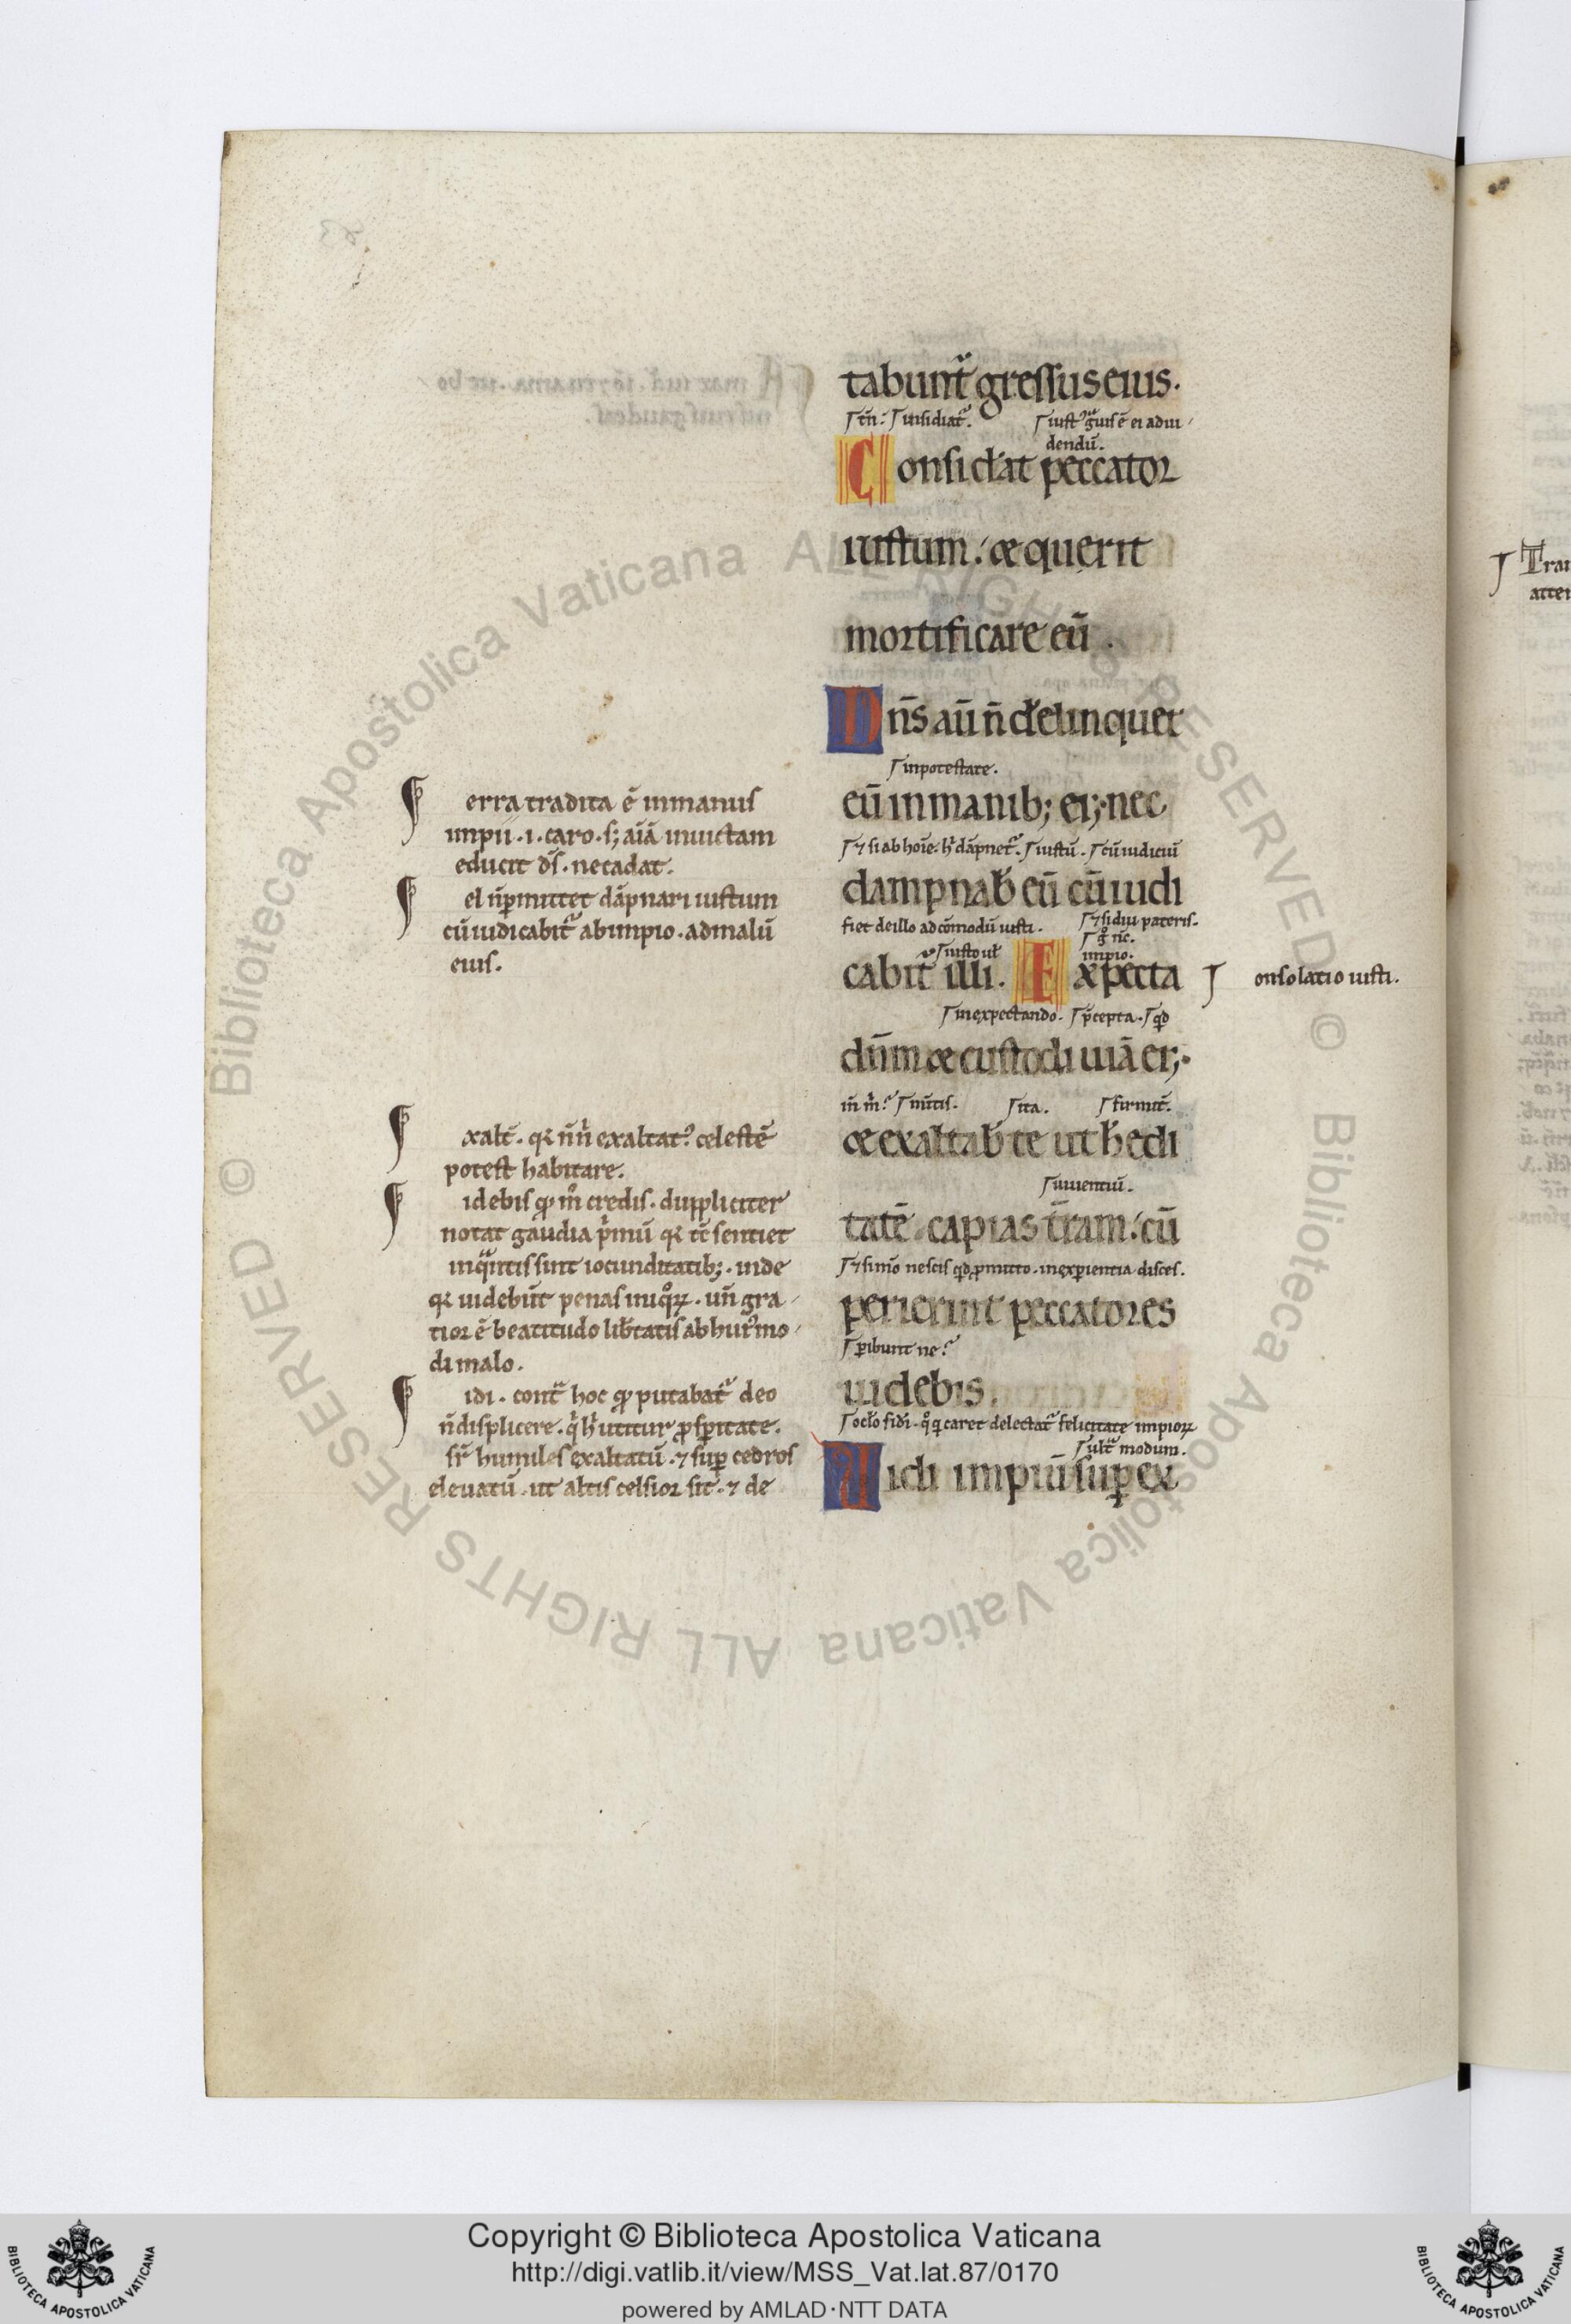 tabunt᷑ gressus eius.
⌈tn̄. ⌈insidiat᷑. ⌈iust᷒ gͣuis ē ei ad ui
dendū.
Consid̵at peccator
iustum. ⁊ querit
mortificare eū.
Dn̄s aū n̄ derelinquet
⌈in potestate.
eū in manib; ei; nec
⌈⁊ si ab hoīe. ⌈iustū. ⌈cū iudiciū
dampnab̄ eū cū iudi
fiet de illo ad cōmodū iusti. ⌈⁊ si diu pateris.
⌈iusto ul̄
impio.
cabit᷑ illi. Expecta
⌈in expectando. ⌈p̄cepta. ⌈qd
dn̄m ⁊ custodi uiā ei;
⌈ita. ⌈firmit̄.
⁊ exaltab̄ te ut h̄edi
⌈uiuentiū.
tatē capias t̄ram. cū
⌈⁊ si m̊ nescis qd ꝓmitto. in exp̱ientia disces.
perierint peccatores
⌈p̱ibunt ne.
uidebis.
⌈oclo fidi. delectat᷑ felicitate impioꝝ
⌈ult᷑ modum.
Uidi impiū sup̱ ex
erra tradita ē in manus
impii .i. caro. s; aīā inuictam
educit d̄s. ne cadat.
el n̄ p̱mittet dāpnari iustum
cū iudicabit᷑ ab impio. ad malū
eius.
onsolatio iusti.
xalt̄. qꝛ n̄ n̄ exaltat᷒ celestē
potest habitare.
idebis qđ m̊ credis. duppliciter
notat gaudia p̍mū qꝛ tc̄ sentiet
in qͣntis sint iocunditatib;. inde
qꝛ uidebūt penas iniq̊ꝝ. un̄ gra
tior ē beatitudo lib̄tatis ab hui᷒mo
di malo.
idi. contͣ hoc qđ putabat᷑ deo
n̄ displicere. q̍ h̍ utitur ꝓsp̱itate.
sr̄ humiles exaltatū. ⁊ sup̱ cedros
eleuatū. ut altis celsior sit. ⁊ de
Trai
atter
© Biblioteca Apostolica Vaticana ALL RIGHTS RESERVED
© Biblioteca Apostolica Vaticana ALL RIGHTS RESERVED
Copyright © Biblioteca Apostolica Vaticana
http://digi.vatlib.it/view/MSS_Vat.lat.87/0170
powered by AMLAD·NTT DATA
BIBLIOTECA APOSTOLICA VATICANA
BIBLIOTECA APOSTOLICA VATICANA